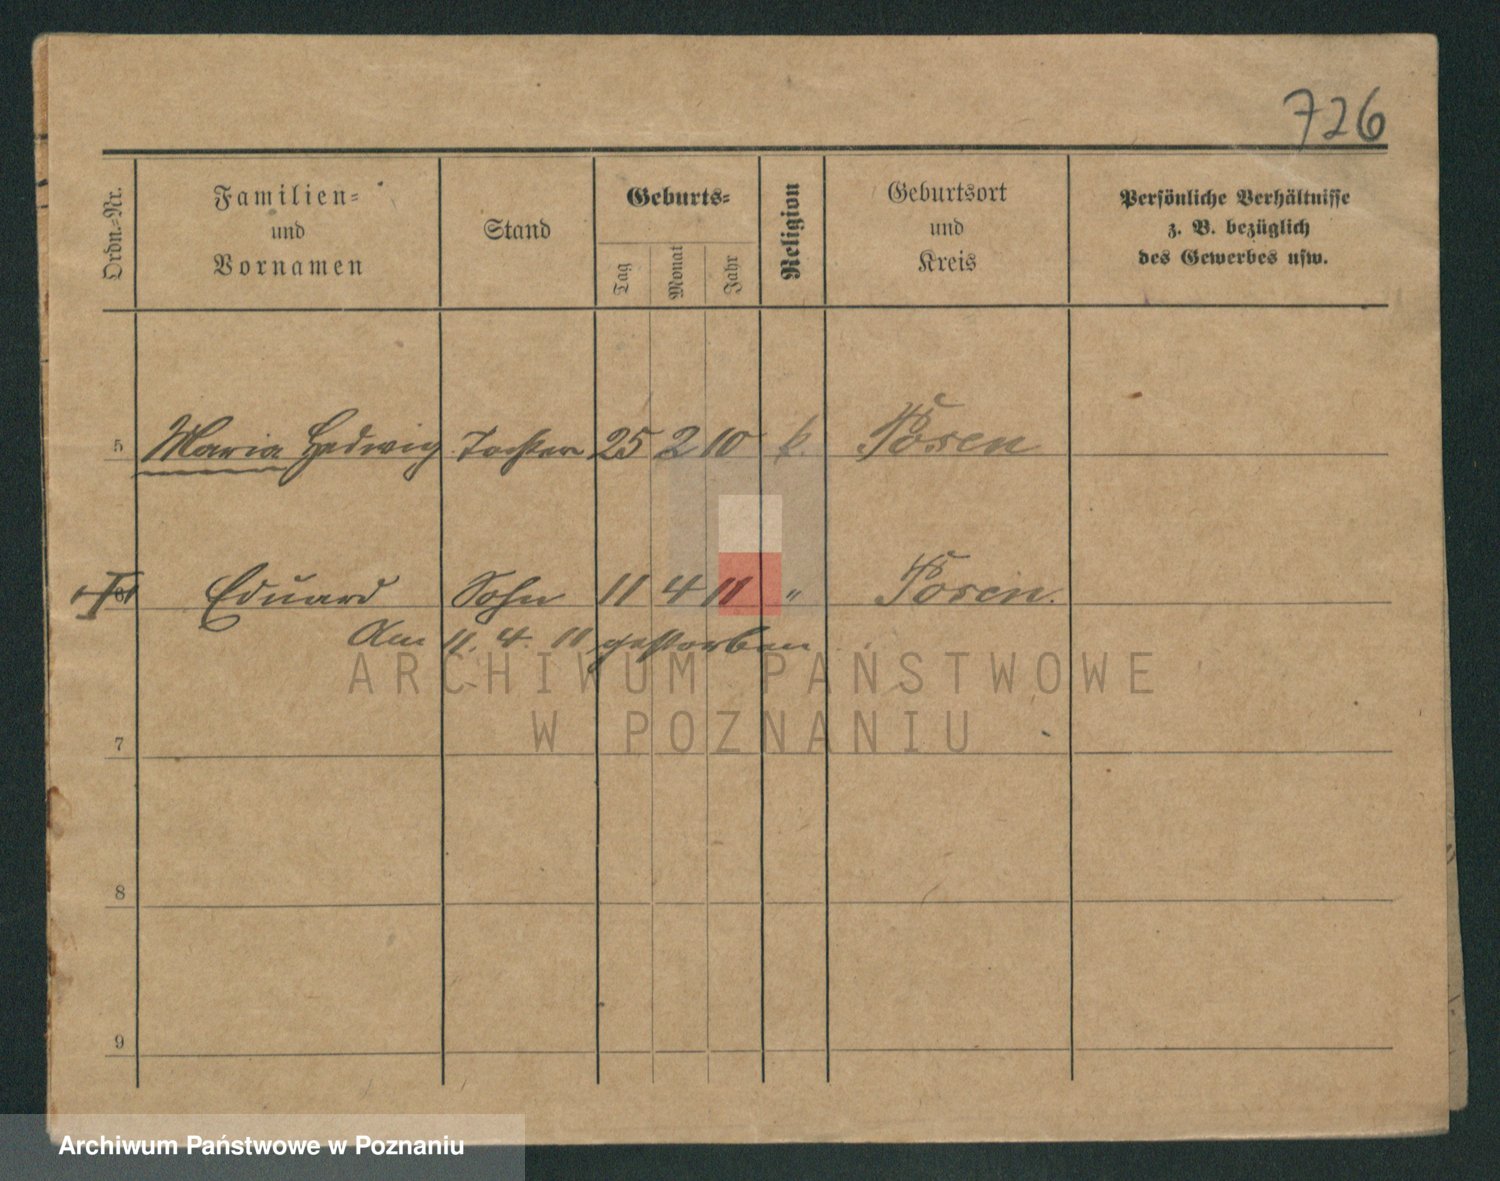 726
Ordn.-Nr.
Familien-
und
Vornamen
Stand
Geburts-
Tag
Monat
Jahr
Religion
Geburtsort
und
Kreis
Persönliche Verhältnisse
z. B. bezüglich
des Gewerbes usw.
5 Maria Hedwig Tochter 25 2 10 k. Posen
6 Eduard Sohn 11 4 11 " Posen.
Am 11. 4. 11 gestorben
ARCHIWUM PAŃSTWOWE
W POZNANIU
7
8
9
Archiwum Państwowe w Poznaniu